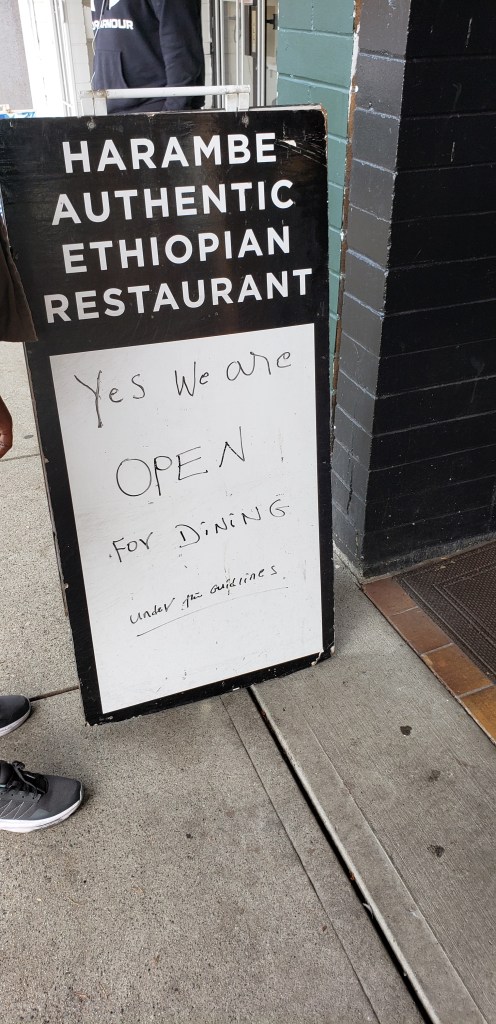 HARAMBE
AUTHENTIC
ETHIOPIAN
RESTAURANT
Yes We are
OPEN
FOr DiNiNG
under the Guidlines